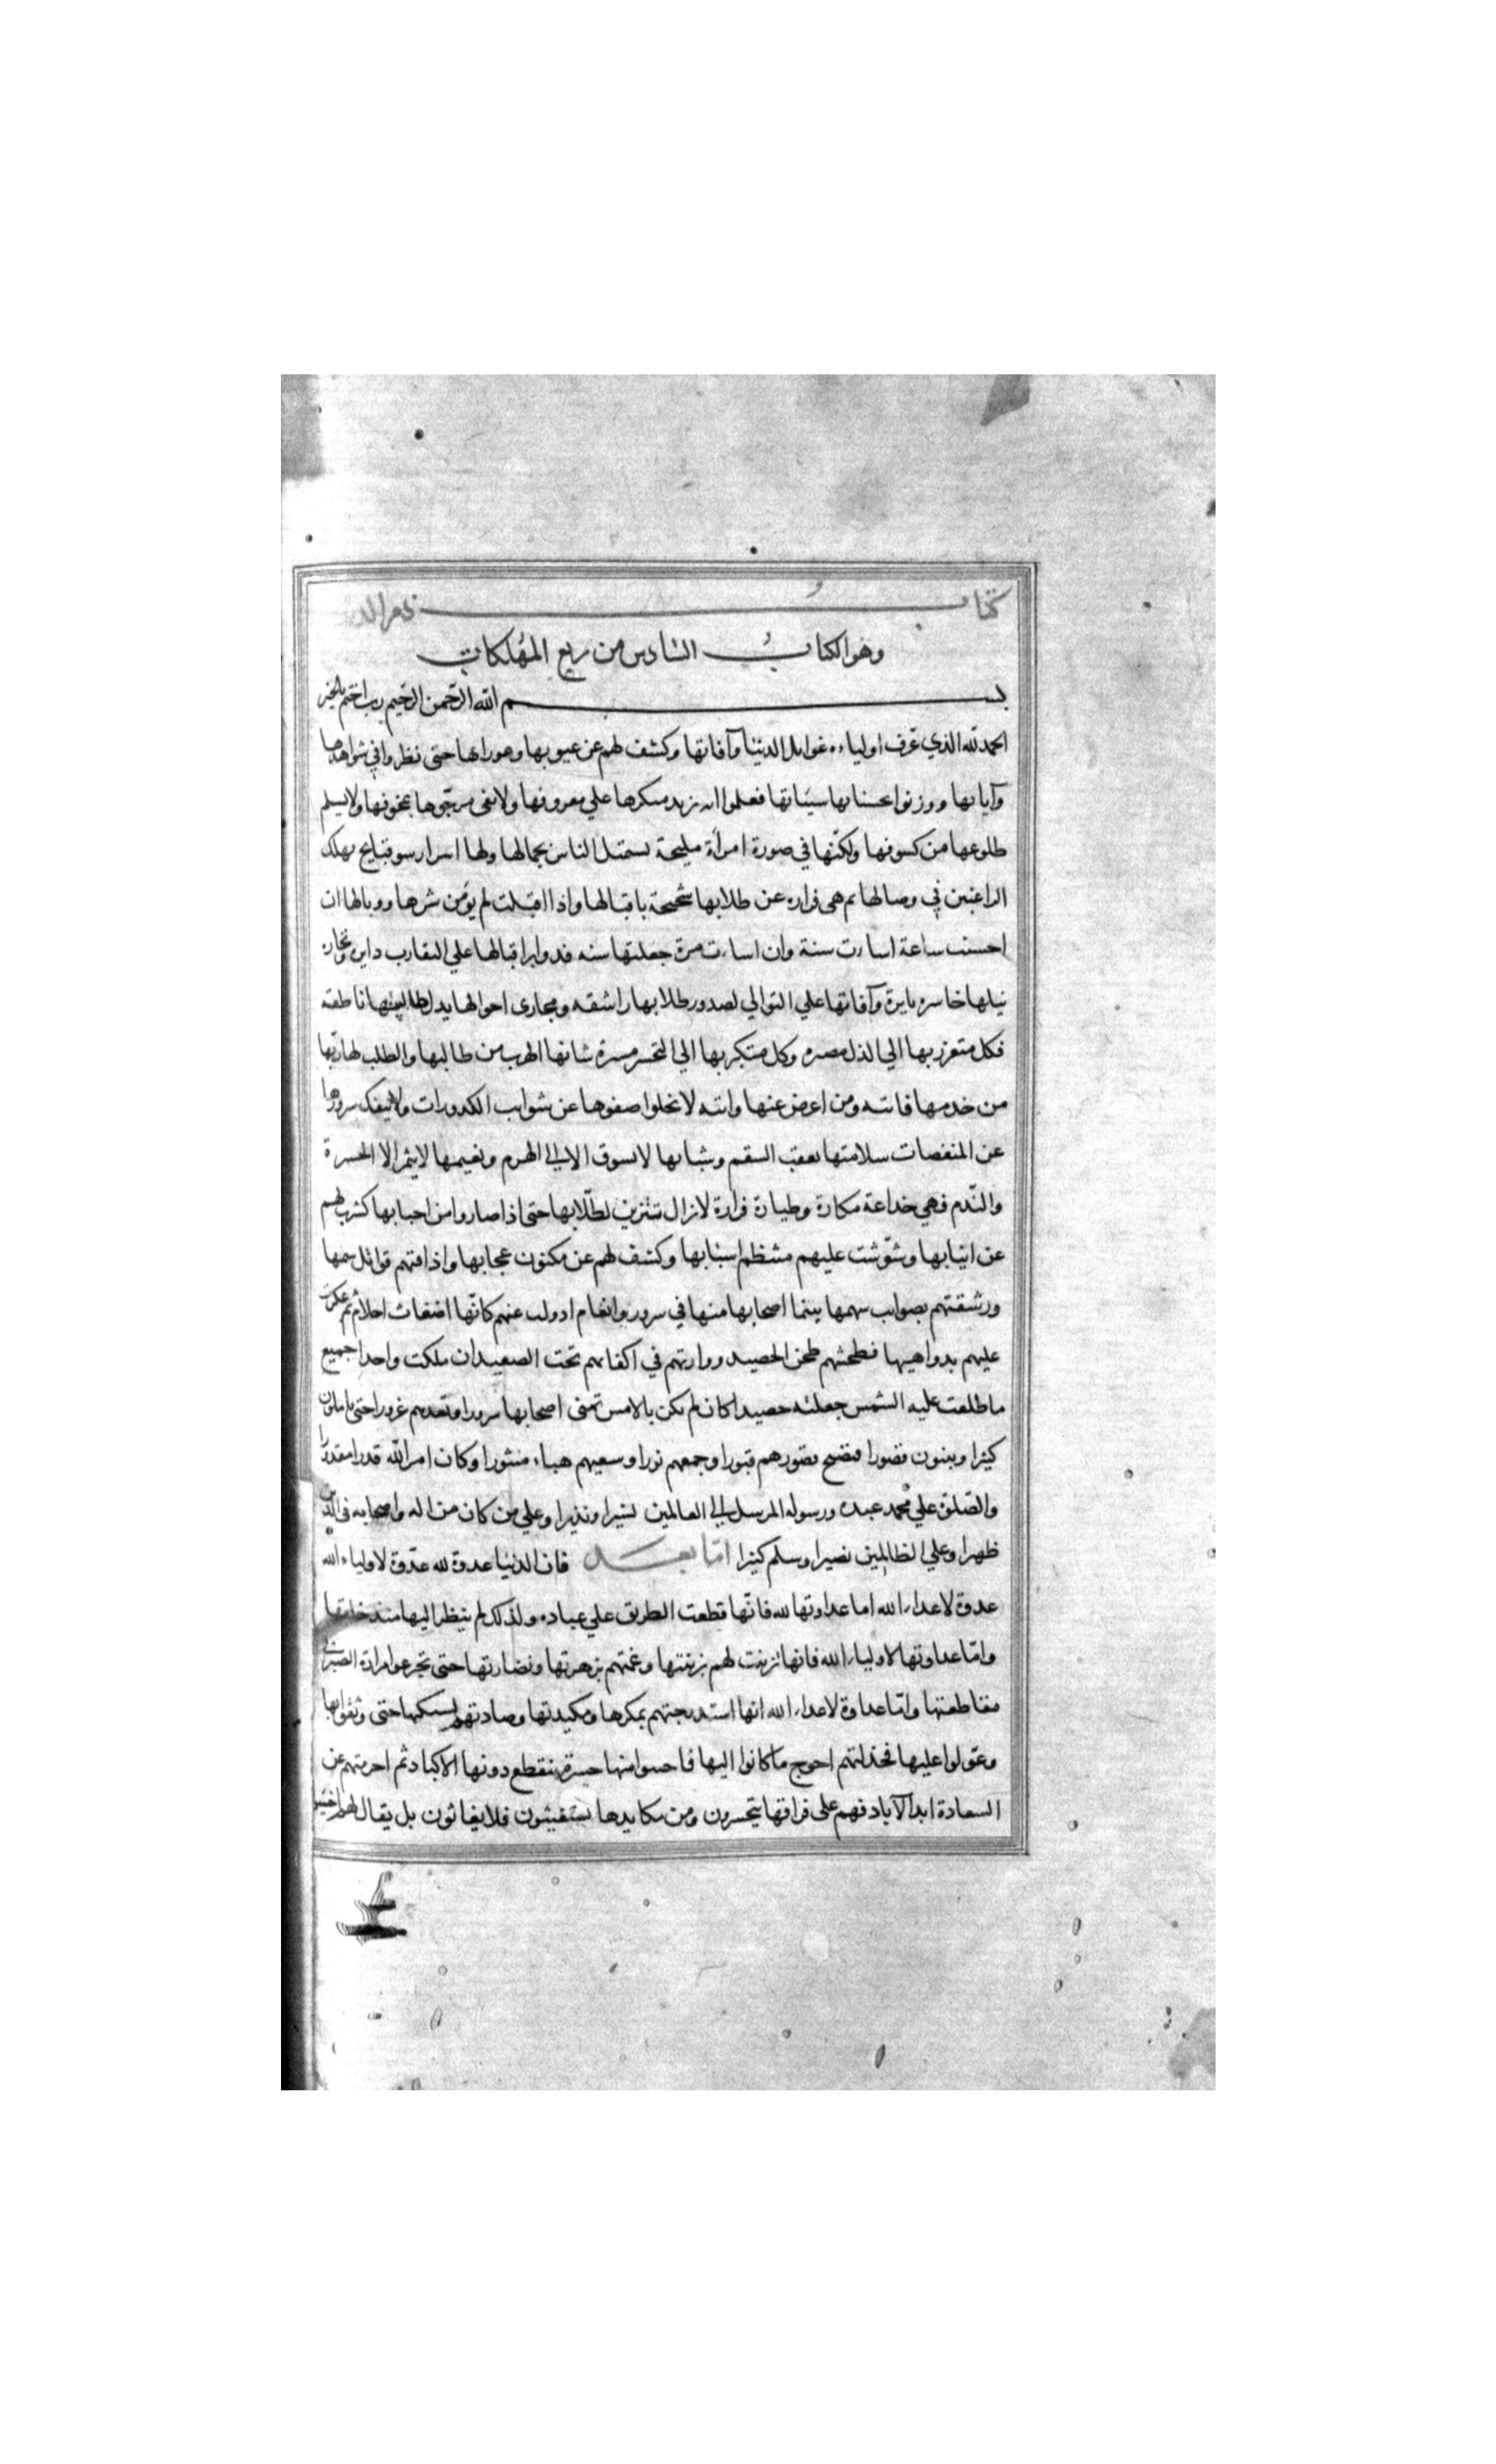 كتاب ذم الد
وهو الكتاب السادس من ربع المهلكات
بسم الله الرحمن الرحيم رب اختم بالخير
الحمد لله الذي عرف اولياءه غوايل الدنيا وآفاتها وكشف لهم عن عيوبها وعوراتها حتى نظروا في شواهدها
وآياتها ووزنوا بحسناتها سيئاتها فعلموا انه يزيد منكرها علي معروفها ولا يفي مرجوها بمخوفها ولا يسلم
طلوعها من كسوفها ولكنها في صورة امرأة مليحة تستميل الناس بجمالها ولها اسرار سو قبايح تهلك
الراغبين في وصالها ثم هي فراره عن طلابها شحيحة باقبالها واذا اقبلت لم يؤمن شرها ووبالها ان
احسنت ساعة اساءت سنة وان اساءت مرة جعلتها سنه فدواير اقبالها علي التقارب دايره وتجارة
نيلها خاسره بايرة وآفاتها علي التوالي لصدور طلابها راشقه ومجاري احوالها بذل طالبيها ناطقه
فكل متعزز بها الي الذل مصيره وكل متكبر بها الي التحسر مسيره شانها الهرب من طالبها والطلب لهاربها
من خدمها فاتته ومن اعرض عنها واتته لا تخلوا صفوها عن شوايب الكدورات ولا ينفك سرورها
عن المنغصات سلامتها تعقب السقم وشبابها لا يسوق الا الي الهرم ونعيمها لا يثمر الا الحسرة
والندم فهي خداعة مكارة وطيارة فرارة لا تزال تتزين لطلابها حتى اذا صاروا من احبابها كشرت لهم
عن انيابها وشوشت عليهم منتظم اسبابها وكشفت لهم عن مكنون عجابها واذاقتهم قواتل سمها
ورشقتهم بصوايب سهمها بينما اصحابها منها في سرور وانعام اذ ولت عنهم كانها اضغاث احلام ثم عكرت
عليهم بدواهيها فطحنتهم طحن الحصيد ووارتهم في اكفانهم تحت الصعيد ان ملكت واحدا جميع
ما طلعت عليه الشمس جعلته حصيدا كان لم يكن بالامس تمني اصحابها سرورا وتعدهم غرورا حتى ياملون
كثيرا ويبنون قصورا فتصبح قصورهم قبورا وجمعهم بورا وسعيهم هباء منثورا وكان امر الله قدرا مقدورا
والصلوة علي محمد عبده ورسوله المرسل الي العالمين بشيرا ونذيرا وعلي من كان من اله واصحابه في الدين
ظهيرا وعلي الظالمين نصيرا وسلم كثيرا اما بعد فان الدنيا عدوة لله عدوة لاولياء الله
عدوة لاعداء الله اما عداوتها لله فانها قطعت الطريق علي عباده ولذلك لم ينظر اليها منذ خلقها
واما عداوتها لاولياء الله فانها تزينت لهم بزينتها وغمتهم بزهرتها ونضارتها حتى تجرعوا مرارة الصبر في
مقاطعتها واما عداوة لاعداء الله انها استدرجتهم بمكرها ومكيدتها وصادتهم بشبكها حتى وثقوا بها
وعولوا عليها فخذلتهم احوج ما كانوا اليها فاجتنوا منها حسرة ينقطع دونها الاكباد ثم احرمتهم عن
السعادة ابد الآباد فهم على فراقها يتحسرون ومن مكايدها يستغيثون فلا يغاثون بل يقال لهم